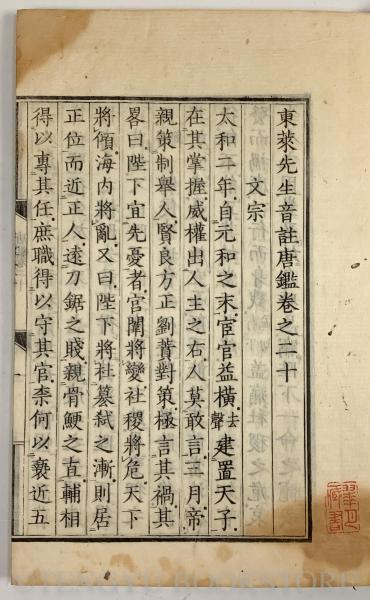 東萊先生音註唐鑑卷之二十
文宗
太和二年自元和之末宦官益橫去聲建置天子
在其掌握威權出人主之右人莫敢言三月帝
親策制舉人賢良方正劉蕡對策極言其禍其
畧曰陛下宜先憂者宮闈將變社稷將危天下
將傾海内將亂又曰陛下將杜篡弑之漸則居
正位而近正人遠刀鋸之賤親骨鯁之直輔相
得以專其任庶職得以守其官柰何以褻近五